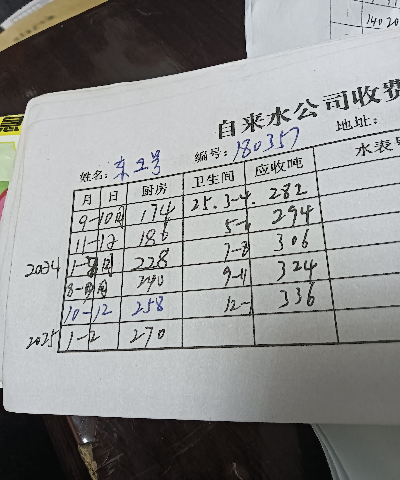 140 20
自来水公司收费
姓名: 东2号 编号: 180357 地址:
月 日 厨房 卫生间 应收吨 水表
9-10月 174 25.3-4 282
11-12 186 5- 294
2024 1- 月 228 7-8 306
8- 月 240 9- 324
10-12 258 12- 336
2025 1-2 270